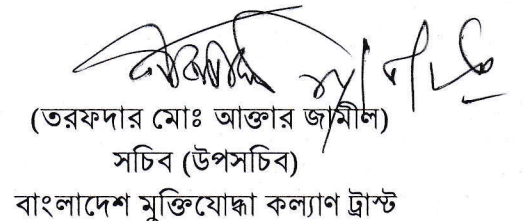 (তরফদার মোঃ আক্তার জামীল)
সচিব (উপসচিব)
বাংলাদেশ মুক্তিযোদ্ধা কল্যাণ ট্রাস্ট